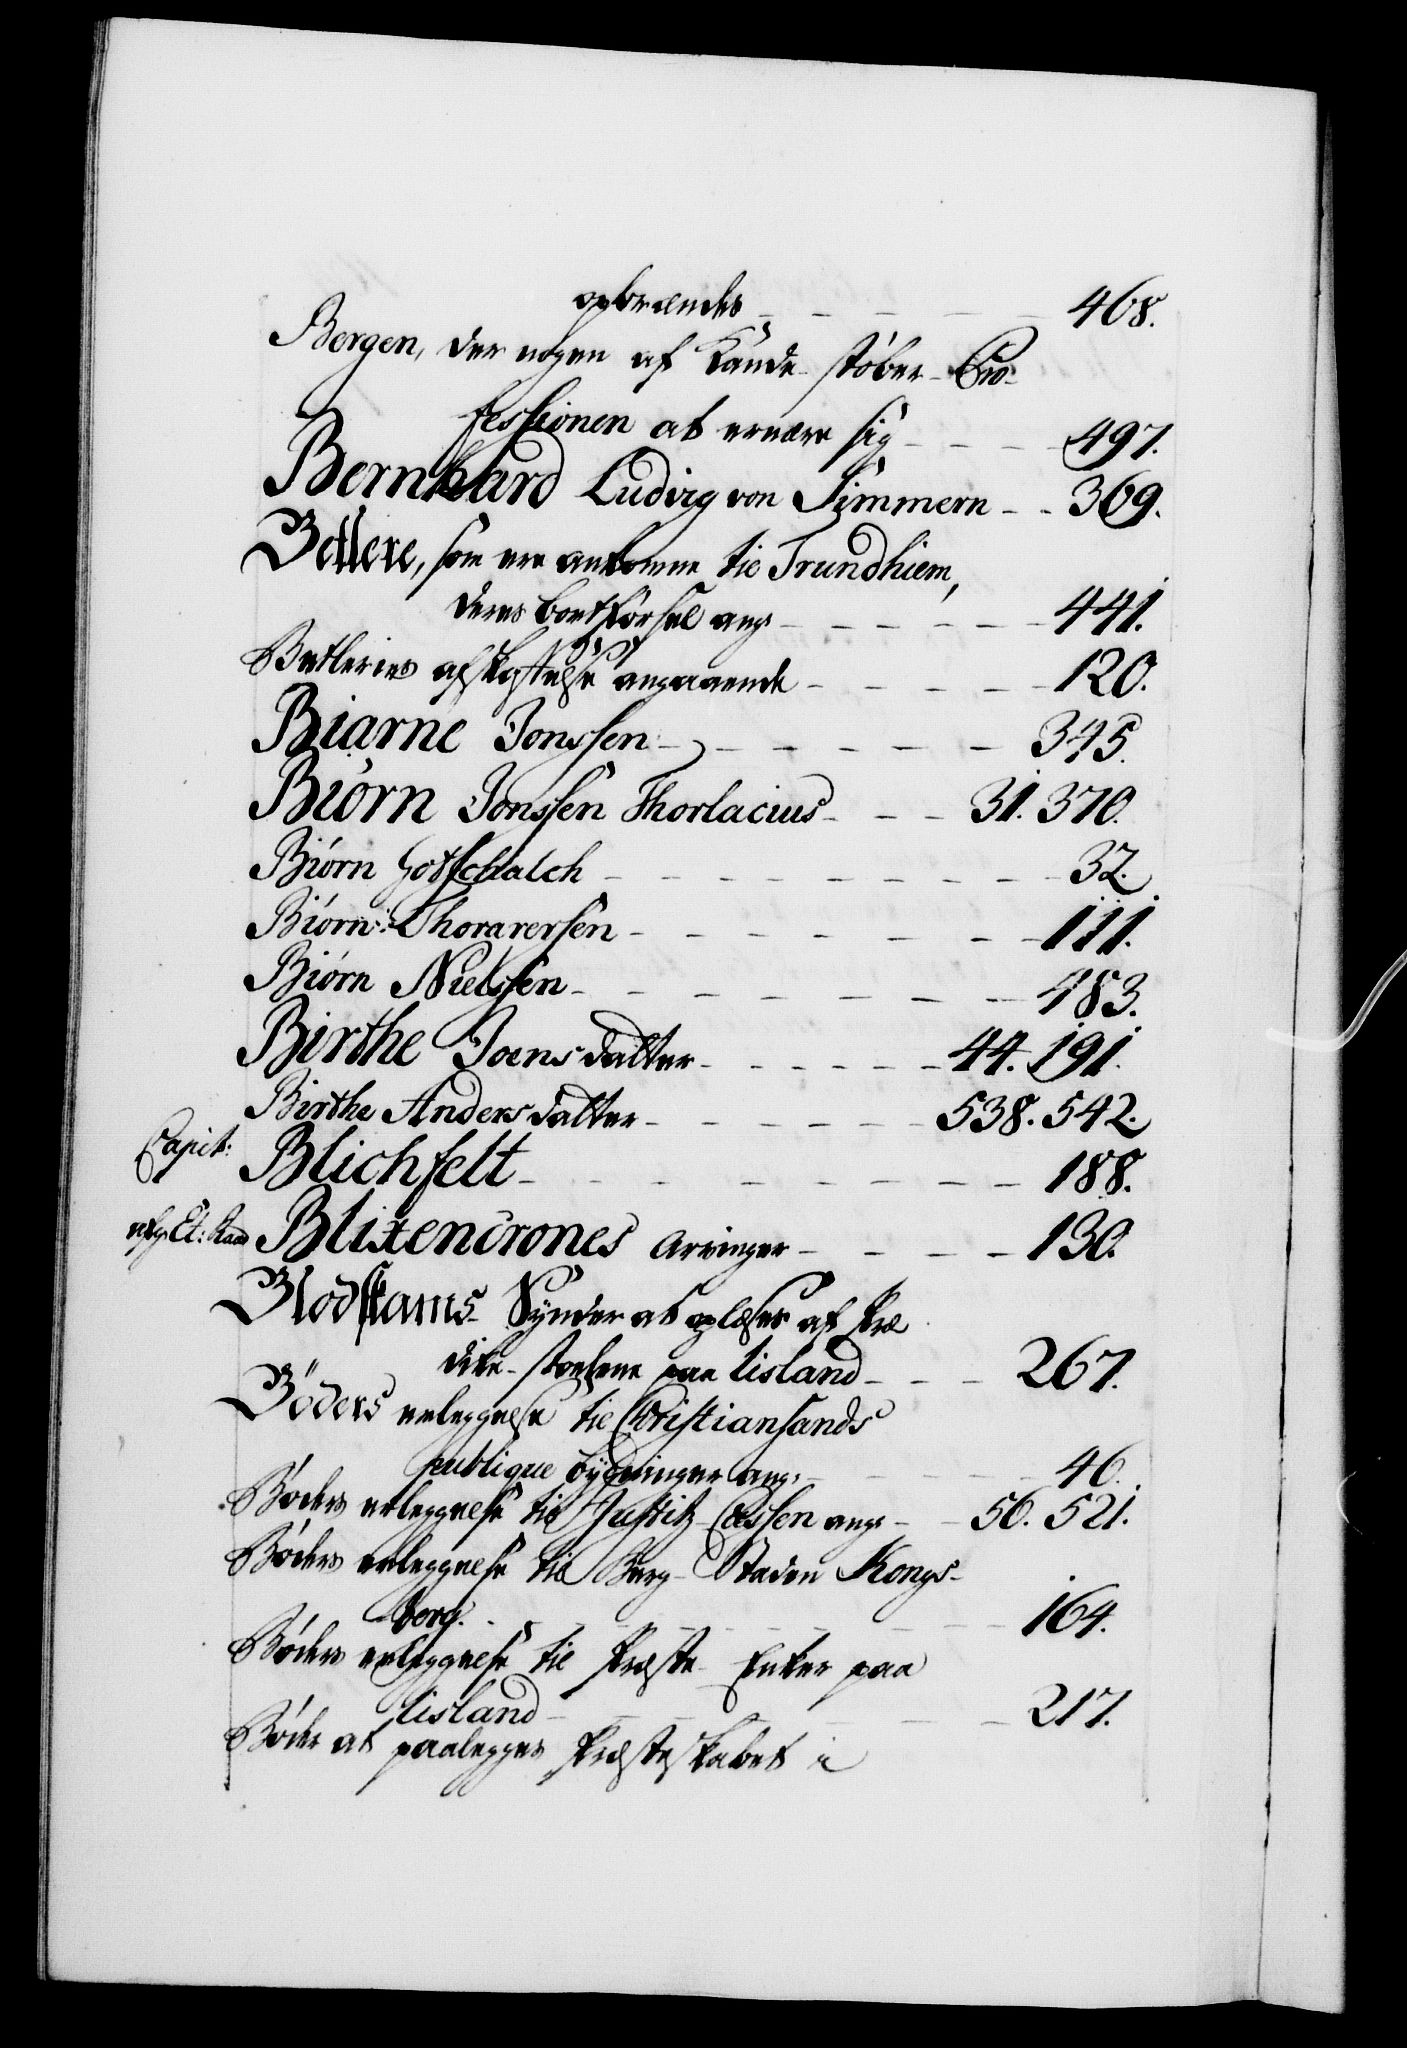 opbrændes - - - - - 468.
Bergen, der nogen af Kande-støber-Pro-
fessionen at ernære sig - - - 497.
Bernhard Ludvig von Simmern - - 369.
Betlere, som ere ankomne til Trundhiem,
deres bortførsel ang: - - - - - 441.
Betleries afskaffelse angaaende - - - - - 120.
Biarne Jonssen - - - - - - 345.
Biørn Jonssen Thorlacius - - - 31. 370.
Biørn Gotschalch - - - - - - - - - 32.
Biørn Thorarersen - - - - - - - 111.
Biørn Nielssen - - - - - - - - 483.
Birthe Joensdatter - - - - - - 44. 191.
Birthe Andersdatter - - - - - - 538. 542.
Capit: Blichfelt - - - - - - - - 188.
afg. Et: Raad Blixencrones Arvinger - - - - 130.
Blodskams-Synder at oplæses af Præ
dike-stoelene paa Iisland - - - 267.
Böders erleggelse til Christiansands
publique bygninger ang: - - - - 46.
Bøders erleggelse til Justitz-Cassen ang: - - 56. 521.
Bøders erleggelse til Berg-Staden Kongs-
berg. - - - - - - - - 164.
Bøders erleggelse til Præste-Enker paa
Iisland - - - - - - - - 217.
Bøder at paalegges Præsteskabet i